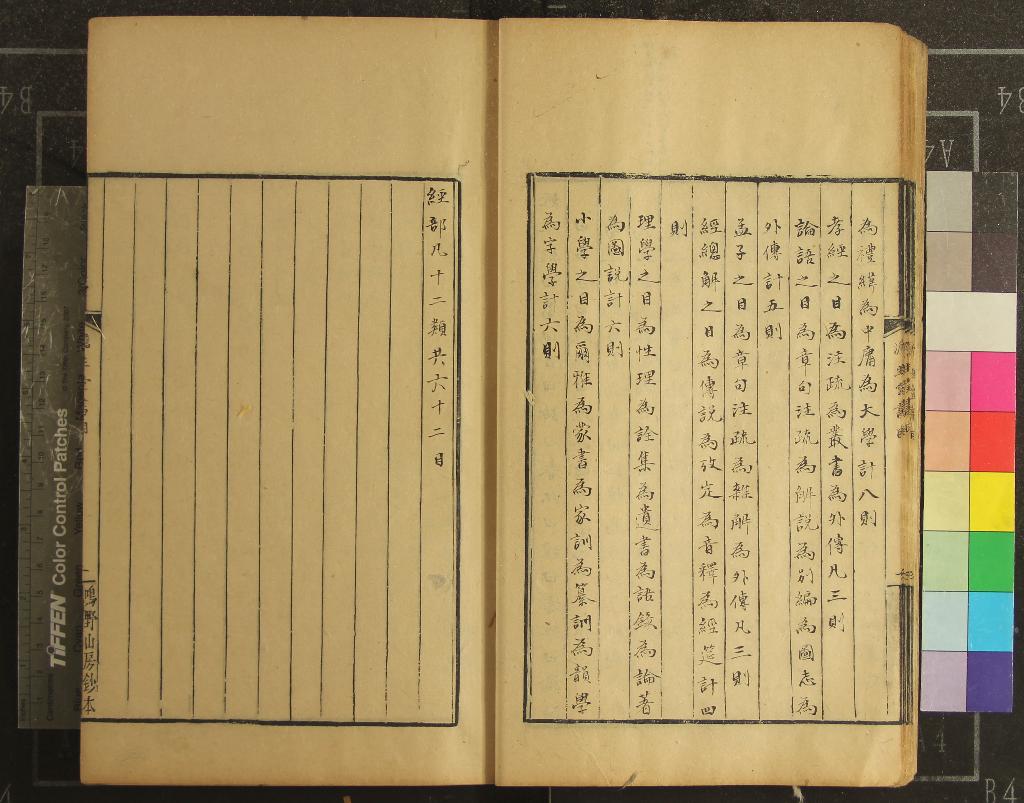 為禮緯為中庸為大學計八則
孝經之目為注疏為叢書為外傳凡三則
論語之目為章句注疏為解說為別編為圖志為
外傳計五則
孟子之目為章句注疏為雜解為外傳凡三則
經總解之目為傳說為攷定為音釋為經筵計四
則
理學之目為性理為詮集為遺書為語錄為論著
為圖說計六則
小學之目為爾雅為蒙書為家訓為纂訓為韻學
為字學計六則
經部凡十二類共六十二目
鳴野山房鈔本
TIFFEN Color Control Patches
B4
A4
A4
B4
B4